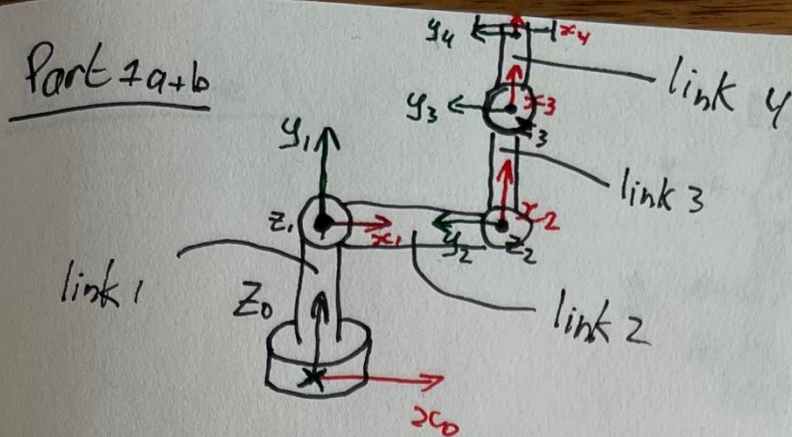 Part 1a+b
y4
x4
link 4
y3
x3
z3
y1
link 3
z1
x1
y2
x2
z2
link 1
z0
link 2
x0